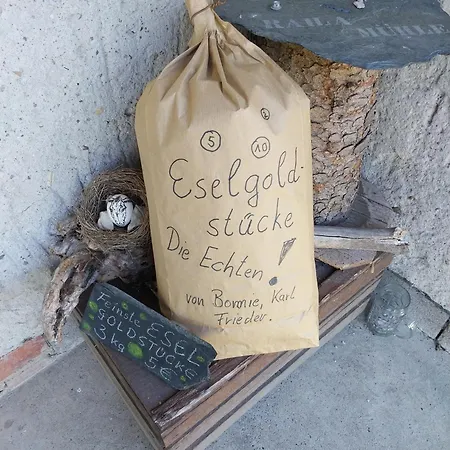 RAILA
MÜRLE
5
10
Eselgold-
stücke
Die Echten!
von Bonnie, Karl
Frieder.
Feinste ESEL
GOLDSTÜCKE
3kg 5€